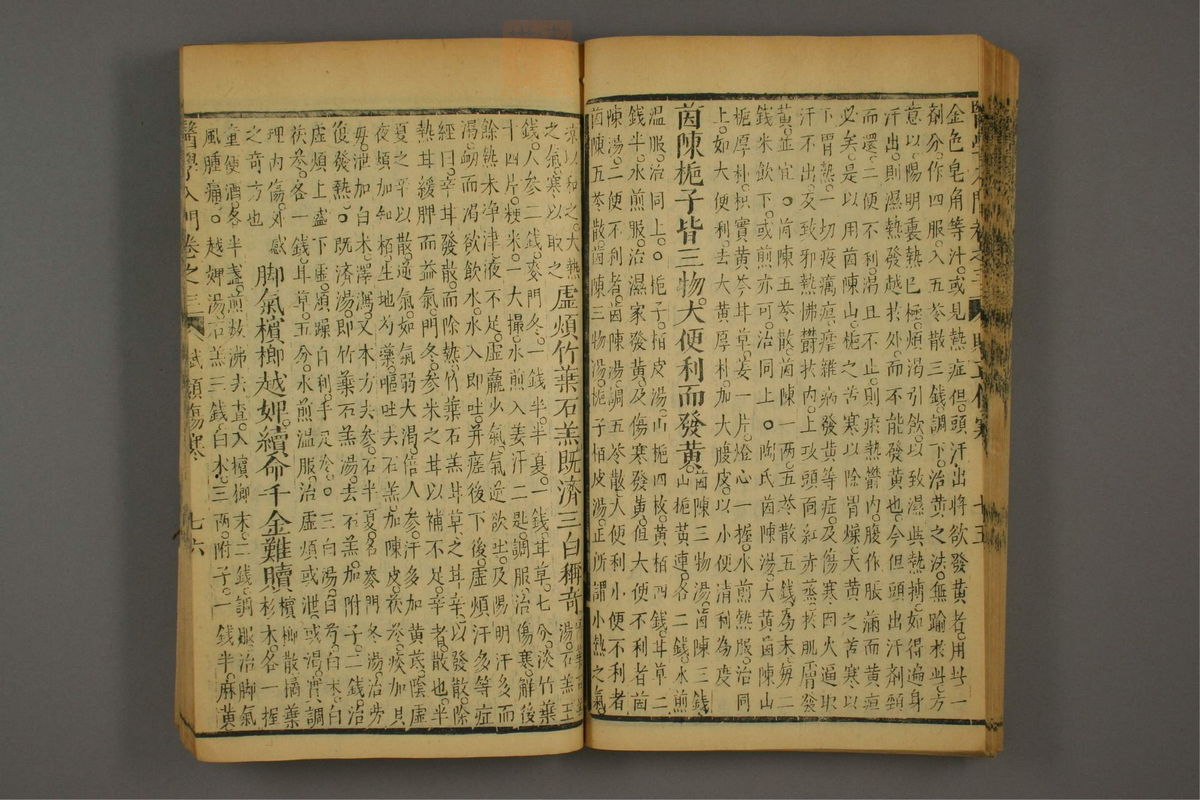 金色皂角等汁或見熱症但頭汗出將欲發黃者用此一
劑分作四服入五苓散三錢調下治黃之法無踰於此方
意以陽明裏熱已極煩渴引飲以致濕與熱搏如得遍身
汗出則濕熱發越於外而不能發黃也今但頭出汗劑頸
而還二便不利渴且不止則瘀熱鬱內腹作脹滿而黃疸
必矣是以用茵陳山梔之苦寒以除胃燥大黃之苦寒以
下胃熱一切疫癘疸瘧雜病發黃等症及傷寒因火逼取
汗不出及致邪熱怫鬱於內上攻頭面紅赤蒸於肌膚發
黃並宜茵陳五苓散茵陳一兩五苓散五錢為末每二
錢米飲下或煎亦可治同上陶氏茵陳湯大黃茵陳山
梔厚朴枳實黃芩甘草姜一片燈心一握水煎熱服治同
上如大便利去大黃厚朴加大腹皮以小便清利為度
茵陳梔子皆三物大便利而發黃茵陳三物湯茵陳三錢
山梔黃連各二錢水煎
溫服治同上梔子柏皮湯山梔四枚黃柏四錢甘草二
錢半水煎服治濕家發黃及傷寒發黃值大便不利者茵
陳湯二便不利者茵陳湯調五苓散大便利小便不利者
茵陳五苓散茵陳三物湯梔子柏皮湯正所謂小熱之氣
醫學入門 卷之三 七五
涼以和之大熱
之氣寒以取之
虛煩竹葉石羔既濟三白稱奇
湯石羔五
錢人參二錢麥門冬一錢半半夏一錢甘草七分淡竹葉
十四片粳米一大撮水煎入姜汁二匙調服治傷寒解後
餘熱未淨津液不足虛羸少氣氣逆欲吐及陽明汗多而
渴衂而渴欲飲水水入即吐并瘧後下後虛煩汗多等症
經曰辛甘發散而除熱竹葉石羔甘草之甘辛以發散除
熱甘緩脾而益氣門冬參米之甘以補不足辛者散也半
夏之辛以散逆氣如氣弱大渴倍人參汗多加黃芪陰虛
夜煩加知柏生地芍藥嘔吐去石羔加陳皮茯苓痰加貝
母泄加白朮澤瀉又本方去參石半夏名麥門冬湯治勞
復發熱既濟湯即竹葉石羔湯去石羔加附子二錢治
虛煩上盛下虛煩躁自利手足冷三白湯白芍白朮白
茯苓各一錢甘草五分水煎溫服治虛煩或泄或渴實調
理內傷外感
之奇方也
脚氣檳榔越婢續命千金難贖檳榔散橘葉
杉木各一握
童便酒各半盞煎數沸去查入檳榔末二錢調服治脚氣
風腫痛越婢湯石羔三錢白朮三兩附子一錢半麻黃
醫學入門卷之三 賦類傷寒 七六